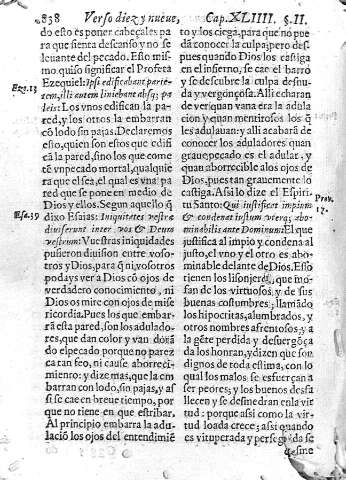 838 Verso diez y nueue, Cap. XLIIII. §. II
do esto es poner cabeçales pa
ra que sienta descanso y no se
leuante del pecado. Esto mis
mo quiso significar el Profeta
Ezequiel: Ipse ædificabat parie-
tem, illi autem liniebant absq; pa
leis: Los vnos edifican la pa
red, y los otros la embarran
cō lodo sin pajas. Declaremos
esto, quien son estos que edifi
cā la pared, sino los que come
tē vn pecado mortal, qualquie
ra que el sea, el qual es vna pa
red que se pone en medio de
Dios y ellos. Segun aquello q̄
dixo Esaias: Iniquitates vestræ
diuiserunt inter vos & Deum
vestrum: Vuestras iniquidades
pusieron diuision entre voso-
tros y Dios, para q̄ ni vosotros
podays ver a Dios cō ojos de
verdadero conocimiento, ni
Dios os mire con ojos de mise
ricordia. Pues los que embar-
rā esta pared, son los adulado-
res, que dan color y van dorā
do el pecado porque no parez
ca tan feo, ni cause aborreci-
miento: y dize mas, que la em
barran con lodo, sin pajas, y as
si se cae en breue tiempo, por
que no tiene en que estribar.
Al principio embarra la adu-
laciō los ojos del entendimiē
Eze. 13
Esa. 59
to y los ciega, para que no pue
dā conocer la culpa; pero des
pues quando Dios los castiga
en el infierno, se cae el barro
y se descubre la culpa desnu-
da y vergonçosa. Alli echaran
de ver quan vana era la adula
cion y quan mentirosos los q̄
les adulauan: y alli acabarā de
conocer los aduladores quan
graue pecado es el adular, y
quan aborrecible a los ojos de
Dios, pues tan grauemente lo
castiga. Assi lo dize el Espiri-
tu Santo: Qui iustificat impium
& condemnat iustum vterq; abo-
minabilis ante Dominum: El que
justifica al impio y condena al
justo, el vno y el otro es abo-
minable delante de Dios. Esso
tienen los lisonjeros, que
fan de los virtuosos, y de sus
buenas costumbres; llamādo
los hipocritas, alumbrados, y
otros nombres afrentosos; y a
la gēte perdida y desuergōça
da los honran, y dizen que son
dignos de toda estima, con lo
qual los malos se esfuerçan a
ser peores; y los buenos desfa
llecen y se desinedran en la vir
tud: porque assi como la vir-
tud loada crece; assi quando
es vituperada y perseguida se
Prou.
17.
desine